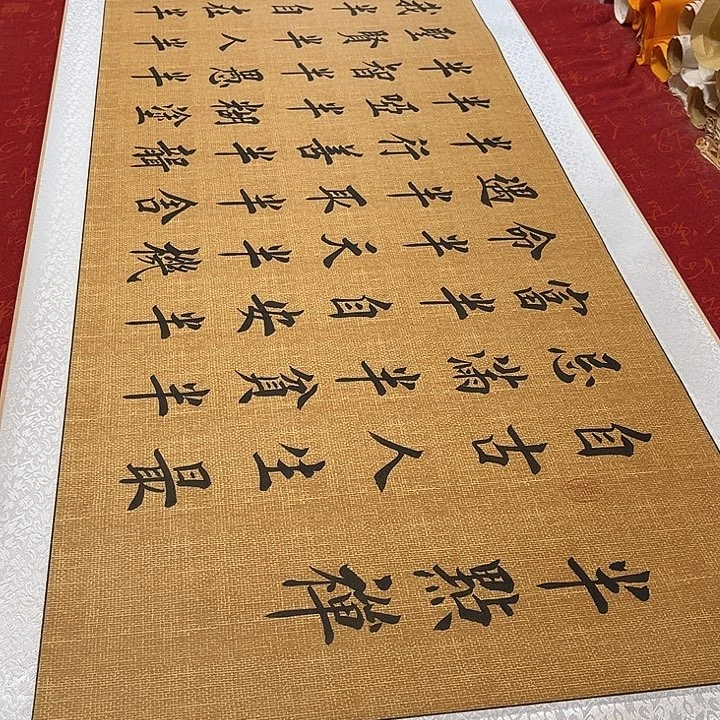 半點禪
自古人生最
忌滿半貧半
富半自安半
命半天半機
遇半取半舍
半行善半聾
半啞半糊塗
半智半愚半
聖賢半人半
我半自在半